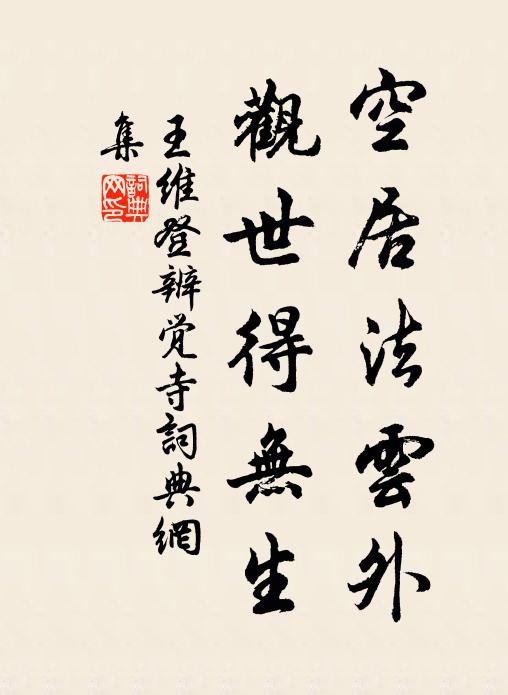 空居法雲外
觀世得無生
王維登辨覚寺詞典網
集
詞典網印